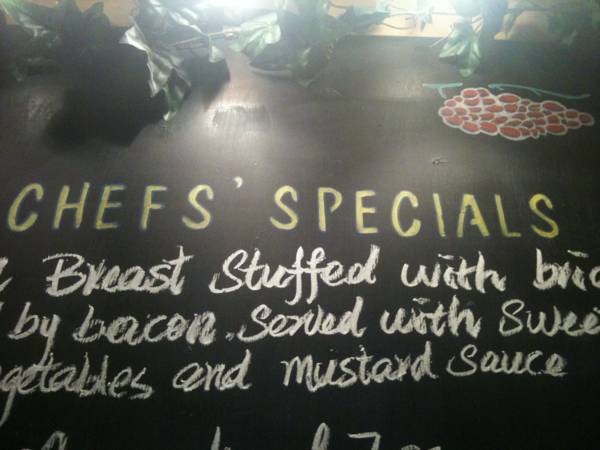 CHEFS' SPECIALS
Breast Stuffed with bric
by bacon. Served with Swee
getables and Mustard Sauce